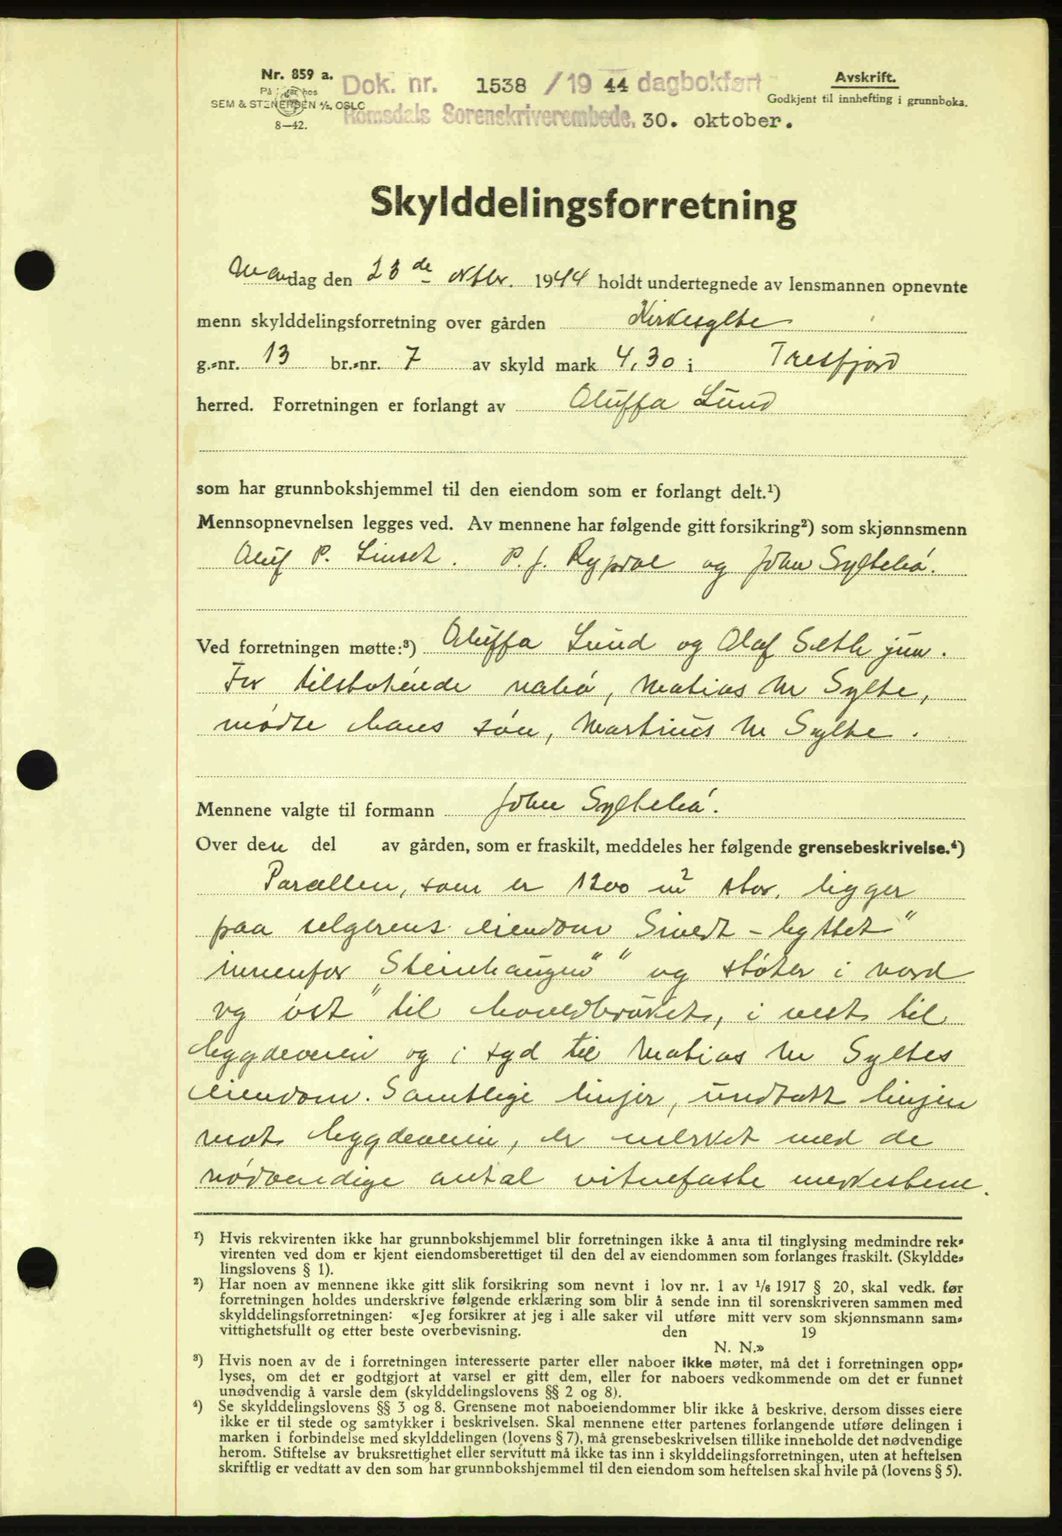 Nr. 859 a.
På lager hos
SEM & STENERSEN A/S, OSLO
8—42.
Dok. nr. 1538 / 19 44 dagbokført
Romsdals Sorenskriverembede, 30. oktober.
Avskrift.
Godkjent til innhefting i grunnboka.
Skylddelingsforretning
Mandag den 23 de oktbr. 1944 holdt undertegnede av lensmannen opnevnte
menn skylddelingsforretning over gården Kirkesylte
g.-nr. 13 br.-nr. 7 av skyld mark 4,30 i Tresfjord
herred. Forretningen er forlangt av Oluffa Lund
som har grunnbokshjemmel til den eiendom som er forlangt delt.¹)
Mennsopnevnelsen legges ved. Av mennene har følgende gitt forsikring²) som skjønnsmenn
Oluf P. Linset. P. J. Rypdal og John Syltebø.
Ved forretningen møtte:³) Oluffa Lund og Olaf Seth jun.
For tilstøtende nabo, Matias M Sylte,
mødte hans søn, Martinus M Sylte.
Mennene valgte til formann John Syltebø.
Over den del av gården, som er fraskilt, meddeles her følgende grensebeskrivelse.⁴)
Parcellen, som er 1200 m² stor, ligger
paa selgerens eiendom
innenfor "Steinhaugen" og støter i nord
og øst til hovedbruket, i vest til
bygdeveien og i syd til Matias M Syltes
eiendom. Samtlige linjer, undtatt linjen
mot bygdeveien, er merket med de
nødvendige antal vitnefaste merkestene.
¹) Hvis rekvirenten ikke har grunnbokshjemmel blir forretningen ikke å anta til tinglysing medmindre rek-
virenten ved dom er kjent eiendomsberettiget til den del av eiendommen som forlanges fraskilt. (Skyldde-
lingslovens § 1).
²) Har noen av mennene ikke gitt slik forsikring som nevnt i lov nr. 1 av 1/6 1917 § 20, skal vedk. før
forretningen holdes underskrive følgende erklæring som blir å sende inn til sorenskriveren sammen med
skylddelingsforretningen: «Jeg forsikrer at jeg i alle saker vil utføre mitt verv som skjønnsmann sam-
vittighetsfullt og etter beste overbevisning. den 19
N. N.»
³) Hvis noen av de i forretningen interesserte parter eller naboer ikke møter, må det i forretningen opp-
lyses, om det er godtgjort at varsel er gitt dem, eller for naboers vedkommende om det er funnet
unødvendig å varsle dem (skylddelingslovens §§ 2 og 8).
⁴) Se skylddelingslovens §§ 3 og 8. Grensene mot naboeiendommer blir ikke å beskrive, dersom disses eiere
ikke er til stede og samtykker i beskrivelsen. Skal mennene etter partenes forlangende utføre delingen i
marken i forbindelse med skylddelingen (lovens § 7), må grensebeskrivelsen tillike inneholde det nødvendige
herom. Stiftelse av bruksrettighet eller servitutt må ikke tas inn i skylddelingsforretningen, uten at heftelsen
skriftlig er vedtatt av den som har grunnbokshjemmel til den eiendom som heftelsen skal hvile på (lovens § 5).